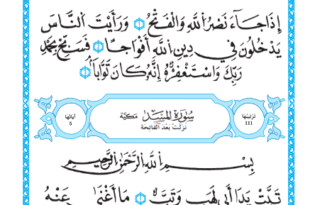 إِذَا جَآءَ نَصْرُ ٱللَّهِ وَٱلْفَتْحُ ١ وَرَأَيْتَ ٱلنَّاسَ
يَدْخُلُونَ فِى دِينِ ٱللَّهِ أَفْوَاجًا ٢ فَسَبِّحْ بِحَمْدِ
رَبِّكَ وَٱسْتَغْفِرْهُ إِنَّهُۥ كَانَ تَوَّابًۢا ٣
ترتيبها 111 سُورَةُ المَسَد مَكيَّة آياتها 5
نزلت بعد الفاتحة
بِسْمِ ٱللَّهِ ٱلرَّحْمَٰنِ ٱلرَّحِيمِ
تَبَّتْ يَدَآ أَبِى لَهَبٍ وَتَبَّ ١ مَآ أَغْنَىٰ عَنْهُ